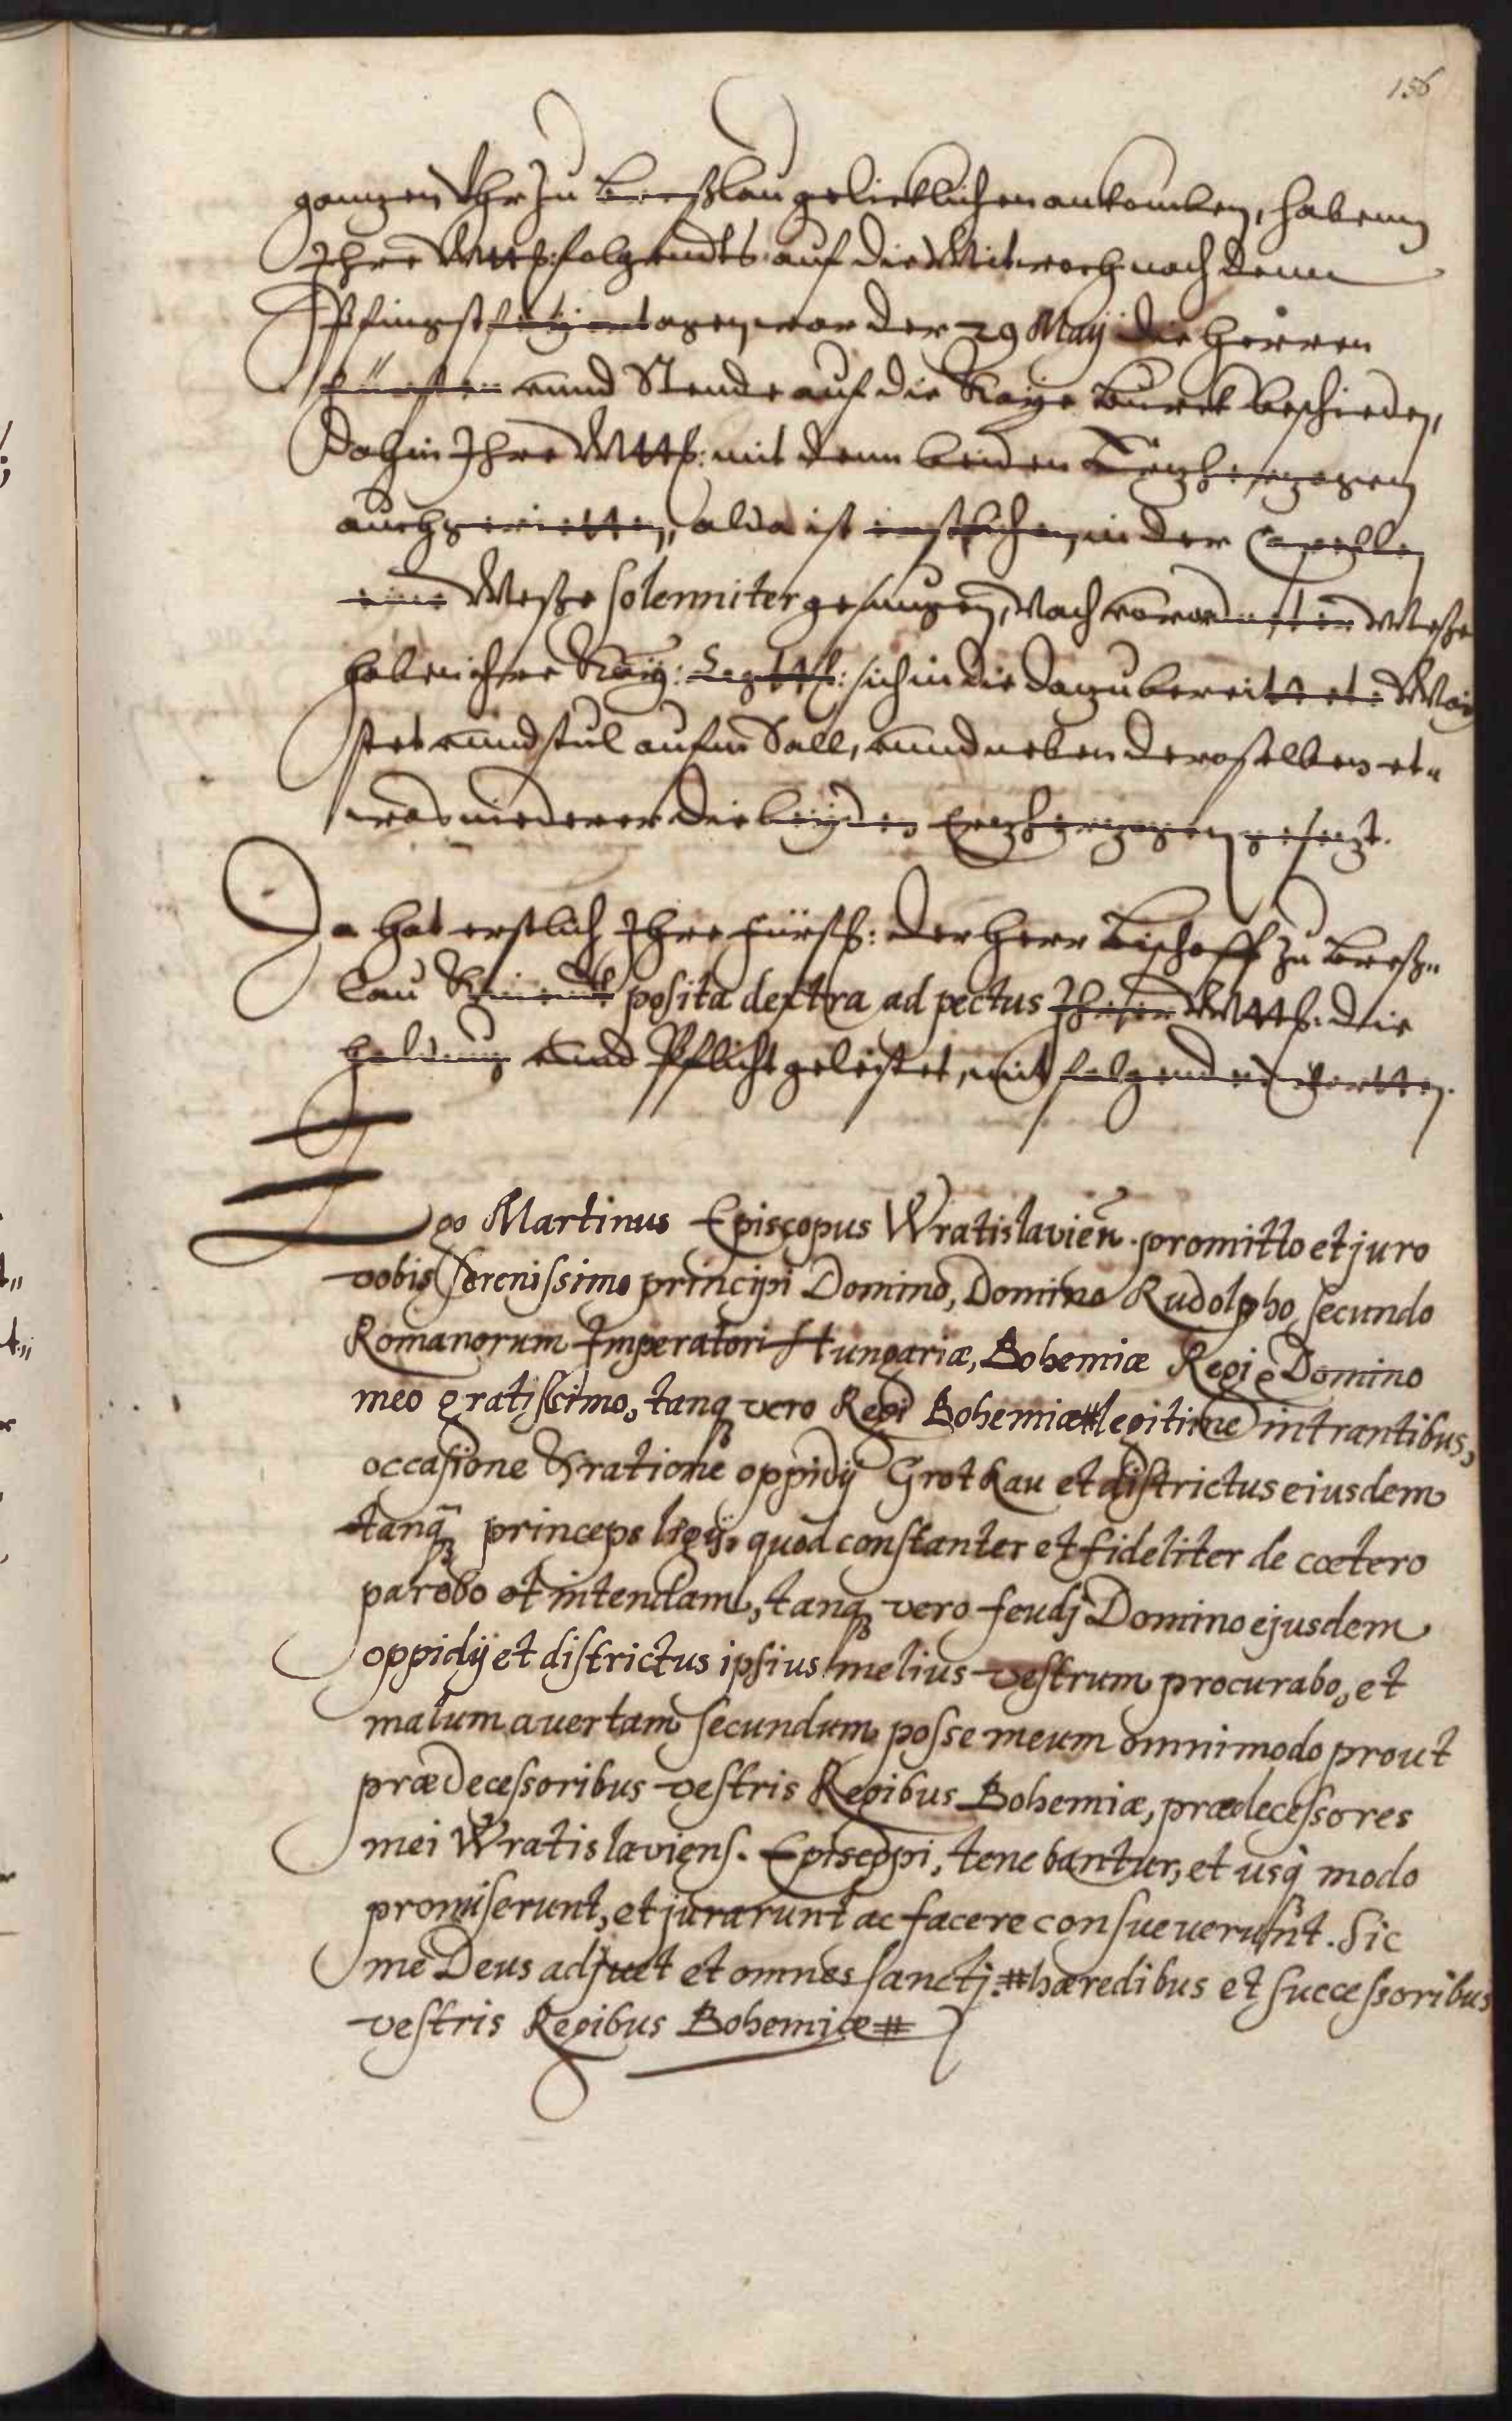 156
ganzen Uhr zu Breßlau gelicklichen ankomben, habenn
Ihre Mttß: folgendts auf die Mitwoch nach denn
Pfingst war der 29 Maij die Herren
Fürsten unnd Stende auf die Kaÿs Burck beschieden,
Dahin Ihre Mttß: mit denn beiden Ertzherzogen
auch geritten, alda ist erstlichen, in der Capellen
eine Meße solenniter gesungen, Nach Meße
haben ihre Kaÿ: Mttß: sich in die dazu bereittete Mai
stet unnd stul aufm Sall, unnd neben deroselben et„
was niederer die beÿden Ertzherzogen gesetzt.
Da hat erstlich Ihre Fürstl: der Herr Bischoff zu Breß„
lau posita dextra ad pectus Mttß: die
holdung unnd Pflicht geleistet, mit folgenden wortten.
Ego Martinus Episcopus Wratislavien̄. promitto et juro
vobis Serenissimo principi Domino, Domino Rudolpho secundo
Romanorum Imperatori Hungariæ, Bohemiæ Regi Domino
meo gratissimo, tanq̣ vero Regi Bohemiæ # legitime intrantibus,
occasione & ratione oppidij Grotkau et districtus eiusdem
tanq̄ princeps ligij, quod constanter et fideliter de cætero
parebo et intendam, tanq̣ vero feudj Domino ejusdem
oppidij et districtus ipsius melius vestrum procurabo, et
malum avertam secundum posse meum omnimodo prout
prædecessoribus vestris Regibus Bohemiæ, prædecessores
mei Wratislaviens. Episcopi, tenebantur, et usq̇ modo
promiserunt, et jurarunt ac facere consueverunt. Sic
me Deus adjuet et omnes sanctj. # hæredibus et successoribus
vestris Regibus Bohemiæ #